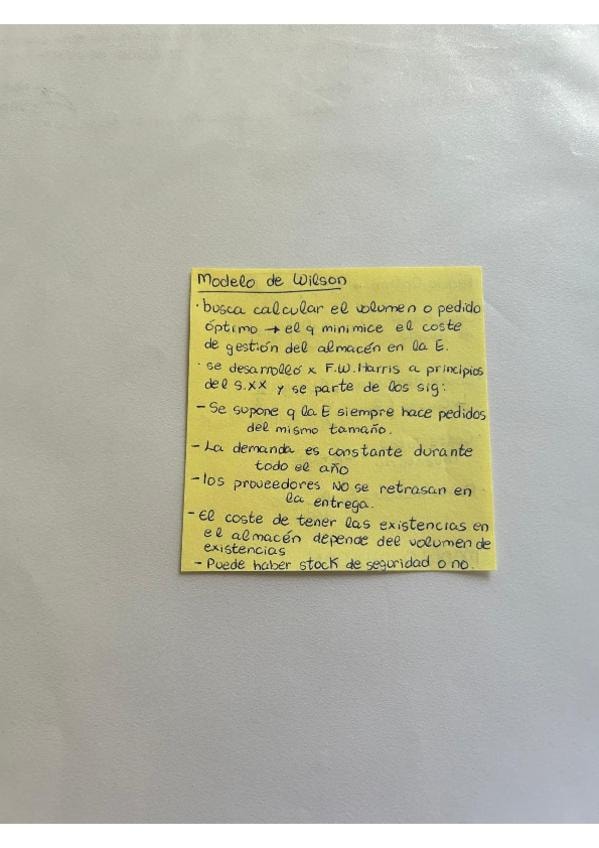 Modelo de Wilson
· busca calcular el volumen o pedido
óptimo → el q minimice el coste
de gestión del almacén en la E.
· se desarrolló x F.W. Harris a principios
del S.XX y se parte de los sig:
- Se supone q la E siempre hace pedidos
del mismo tamaño.
- La demanda es constante durante
todo el año
- los proveedores NO se retrasan en
la entrega.
- El coste de tener las existencias en
el almacén depende del volumen de
existencias
- Puede haber stock de seguridad o no.